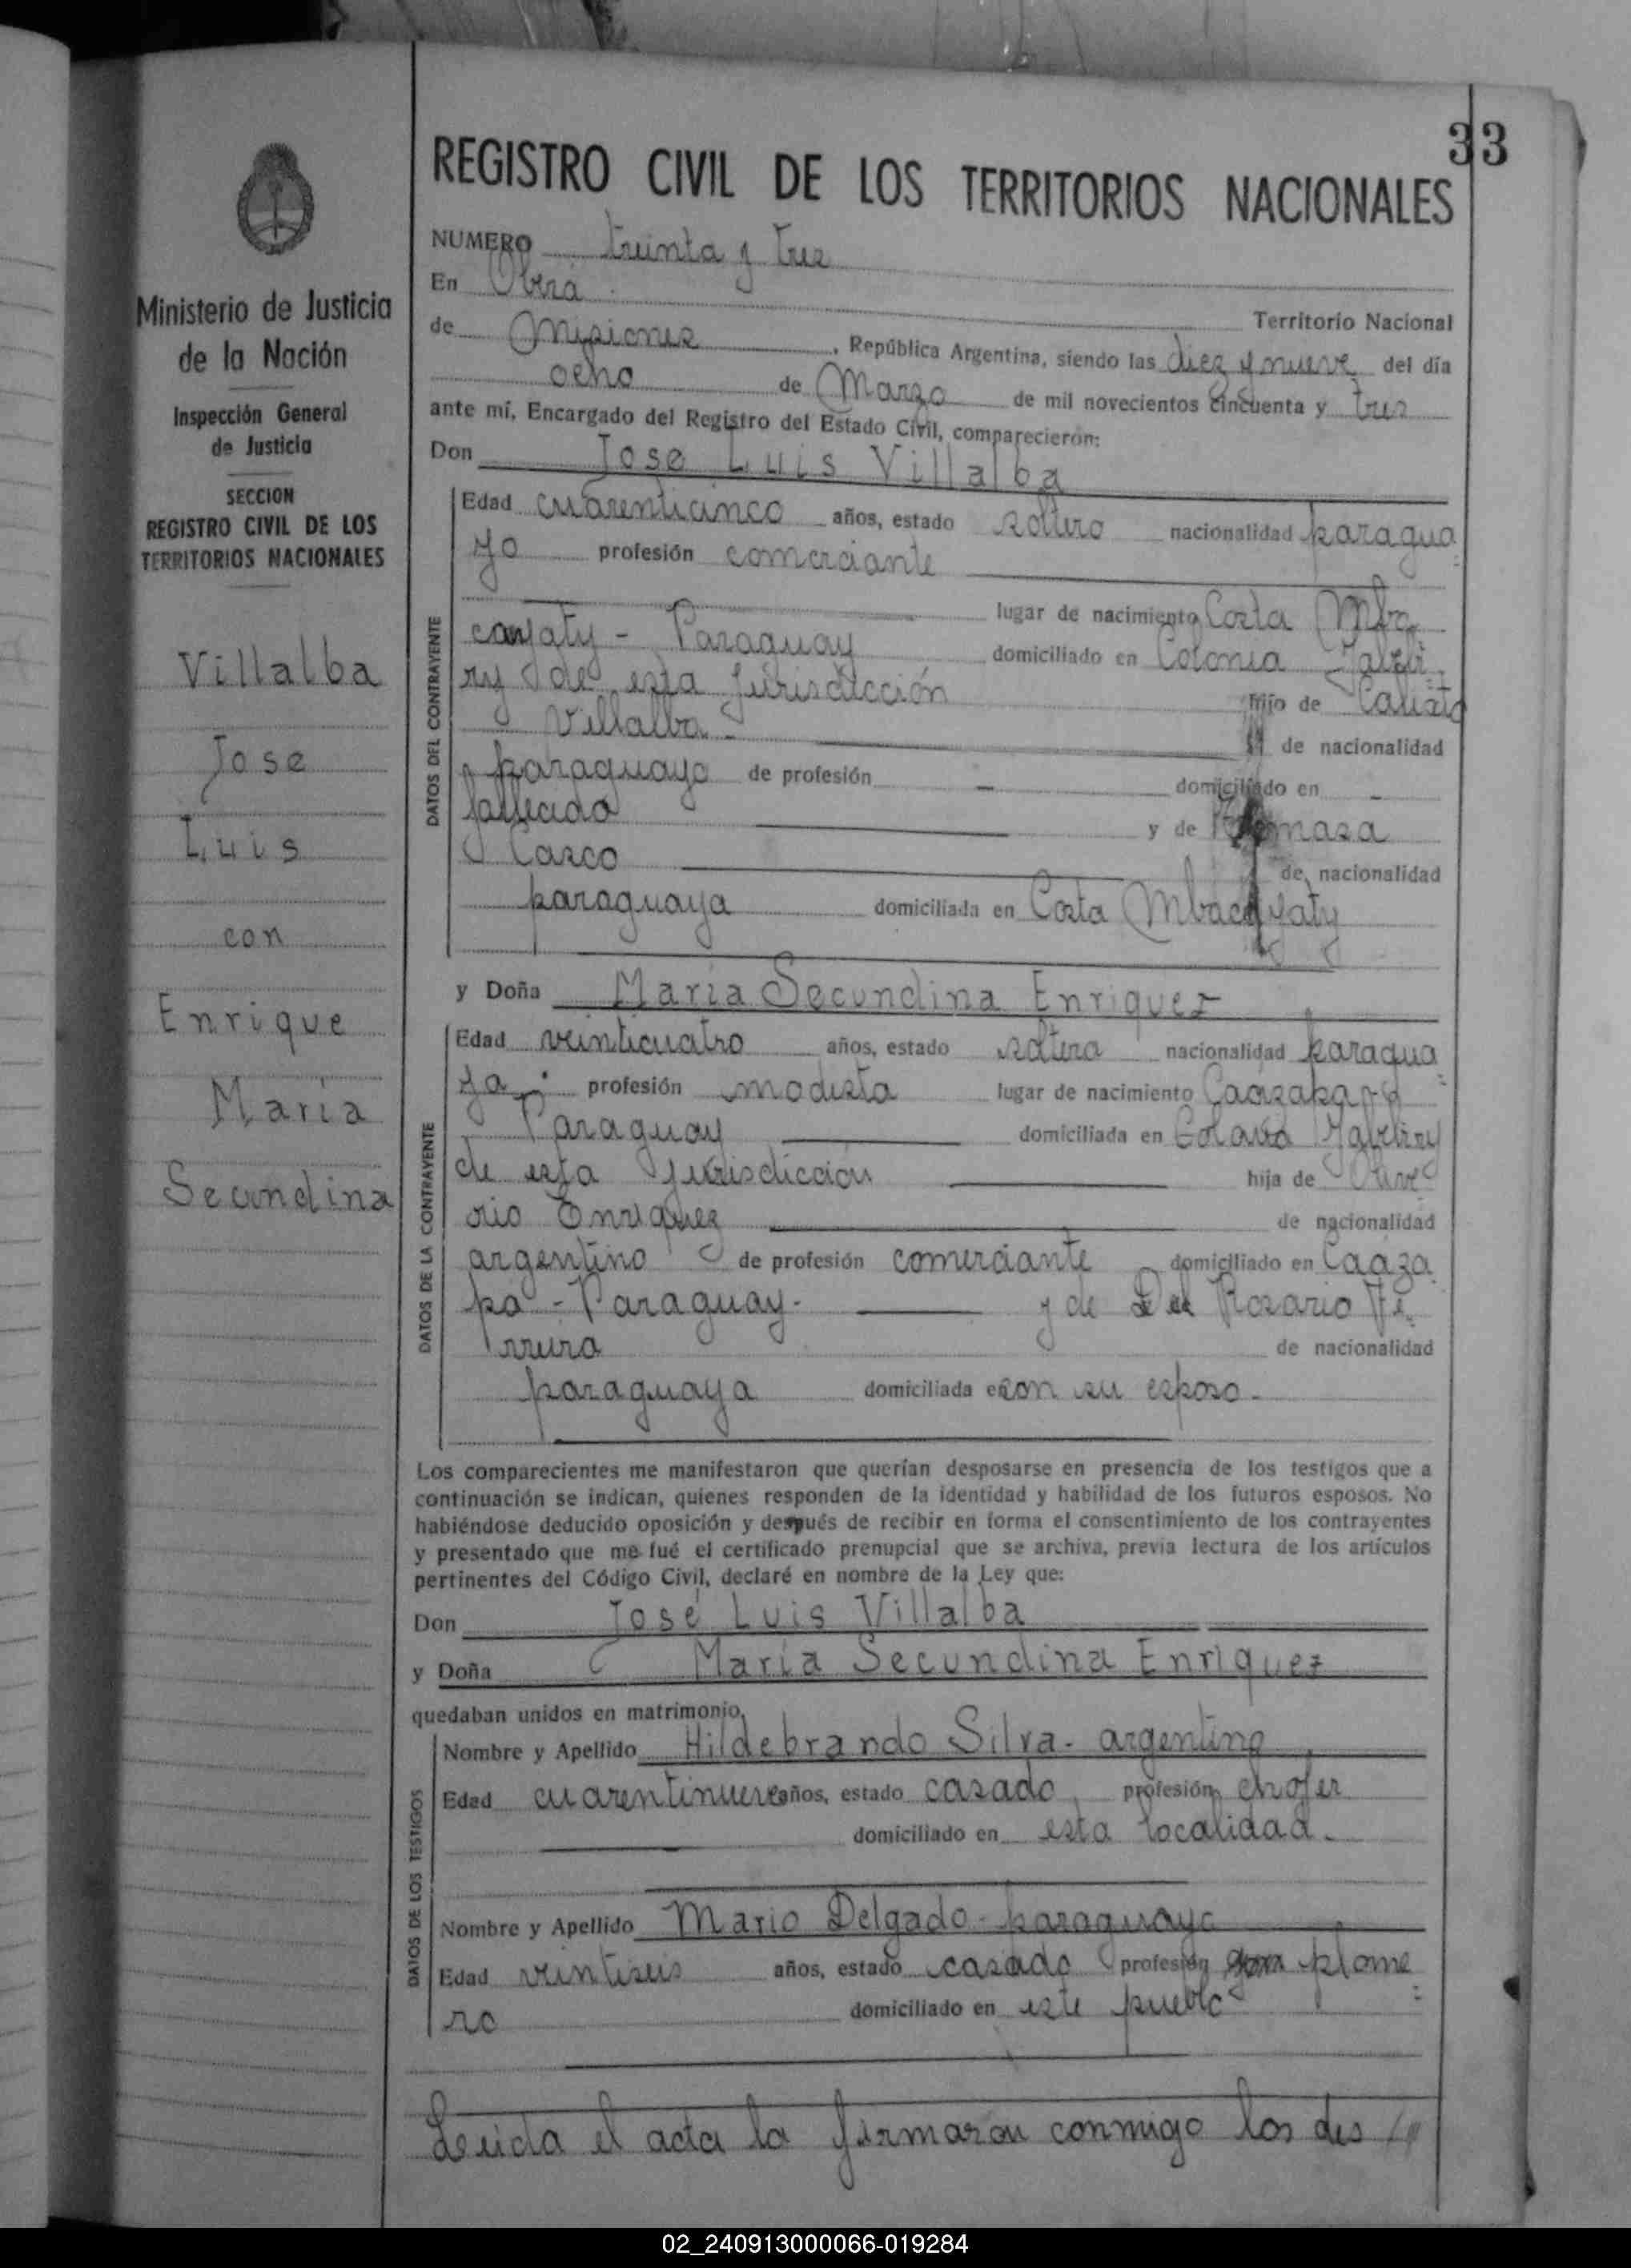 33
REGISTRO CIVIL DE LOS TERRITORIOS NACIONALES
Ministerio de Justicia
de la Nación
Inspección General
de Justicia
SECCION
REGISTRO CIVIL DE LOS
TERRITORIOS NACIONALES
Villalba
Jose
Luis
con
Enrique
María
Secundina
NUMERO treinta y tres
En Oberá
Territorio Nacional
de Misiones, República Argentina, siendo las diez y nueve del día
ocho de Marzo de mil novecientos cincuenta y tres
ante mí, Encargado del Registro del Estado Civil, comparecieron:
Don Jose Luis Villalba
DATOS DEL CONTRAYENTE
Edad cuarenticinco años, estado soltero nacionalidad paragua
yo profesión comerciante
lugar de nacimiento Costa Mba
cayaty - Paraguay domiciliado en Colonia
de esta Jurisdicción hijo de Calixto
Villalba - de nacionalidad
paraguayo de profesión - domiciliado en -
fallecido y de
Casco de nacionalidad
paraguaya domiciliada en Costa Mbacayaty
y Doña María Secundina Enriquez
DATOS DE LA CONTRAYENTE
Edad veinticuatro años, estado soltera nacionalidad paragua
ya profesión modista lugar de nacimiento Caazapa
Paraguay domiciliada en
de esta jurisdicción hija de Olive
rio Enriquez de nacionalidad
argentino de profesión comerciante domiciliado en Caaza
pa - Paraguay - y de Del Rosario Fe
rreira de nacionalidad
paraguaya domiciliada en con su esposo -
Los comparecientes me manifestaron que querían desposarse en presencia de los testigos que a
continuación se indican, quienes responden de la identidad y habilidad de los futuros esposos. No
habiéndose deducido oposición y después de recibir en forma el consentimiento de los contrayentes
y presentado que me fué el certificado prenupcial que se archiva, previa lectura de los artículos
pertinentes del Código Civil, declaré en nombre de la Ley que:
Don José Luis Villalba
y Doña María Secundina Enriquez
quedaban unidos en matrimonio,
DATOS DE LOS TESTIGOS
Nombre y Apellido Hildebrando Silva - argentino
Edad cuarentinueve años, estado casado profesión chofer
domiciliado en esta localidad.
Nombre y Apellido Mario Delgado - paraguayo
Edad veintiseis años, estado casado profesión plome
ro domiciliado en este pueblo
Leuida el acta la firmaron conmigo los des
02_240913000066-019284